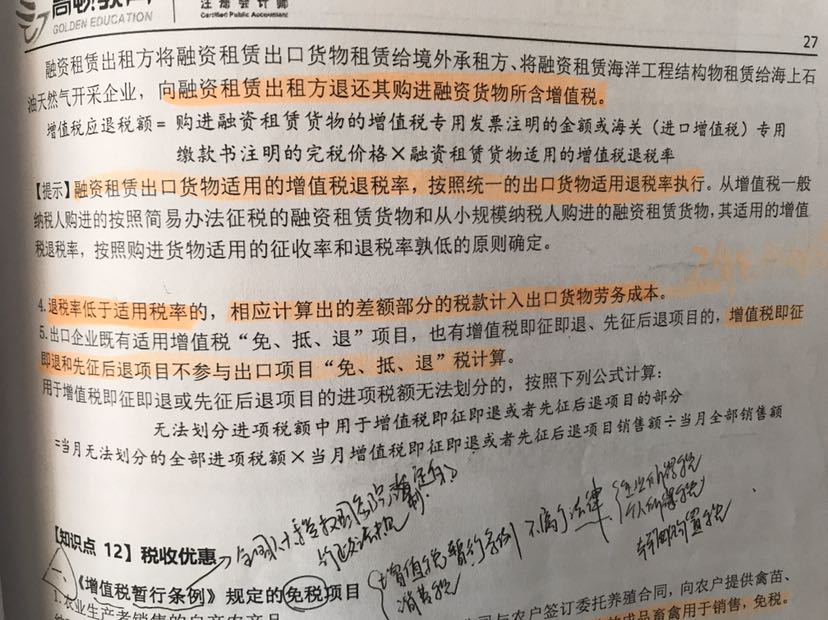 GOLDEN EDUCATION
注册会计师
Certified Public Accountant
27
融资租赁出租方将融资租赁出口货物租赁给境外承租方、将融资租赁海洋工程结构物租赁给海上石
油天然气开采企业，向融资租赁出租方退还其购进融资货物所含增值税。
增值税应退税额＝购进融资租赁货物的增值税专用发票注明的金额或海关（进口增值税）专用
缴款书注明的完税价格×融资租赁货物适用的增值税退税率
【提示】融资租赁出口货物适用的增值税退税率，按照统一的出口货物适用退税率执行。从增值税一般
纳税人购进的按照简易办法征税的融资租赁货物和从小规模纳税人购进的融资租赁货物，其适用的增值
税退税率，按照购进货物适用的征收率和退税率孰低的原则确定。
4.退税率低于适用税率的，相应计算出的差额部分的税款计入出口货物劳务成本。
5.出口企业既有适用增值税“免、抵、退”项目，也有增值税即征即退、先征后退项目的，增值税即征
即退和先征后退项目不参与出口项目“免、抵、退”税计算。
用于增值税即征即退或先征后退项目的进项税额无法划分的，按照下列公式计算：
无法划分进项税额中用于增值税即征即退或者先征后退项目的部分
=当月无法划分的全部进项税额×当月增值税即征即退或者先征后退项目销售额÷当月全部销售额
【知识点 12】税收优惠
增值税暂行条例 不属于法律 企业所得税
消费税 个人所得税
车辆购置税
一、《增值税暂行条例》规定的免税项目
1.农业生产者销售的自产农产品
司与农户签订委托养殖合同，向农户提供禽苗、
的成品畜禽用于销售，免税。